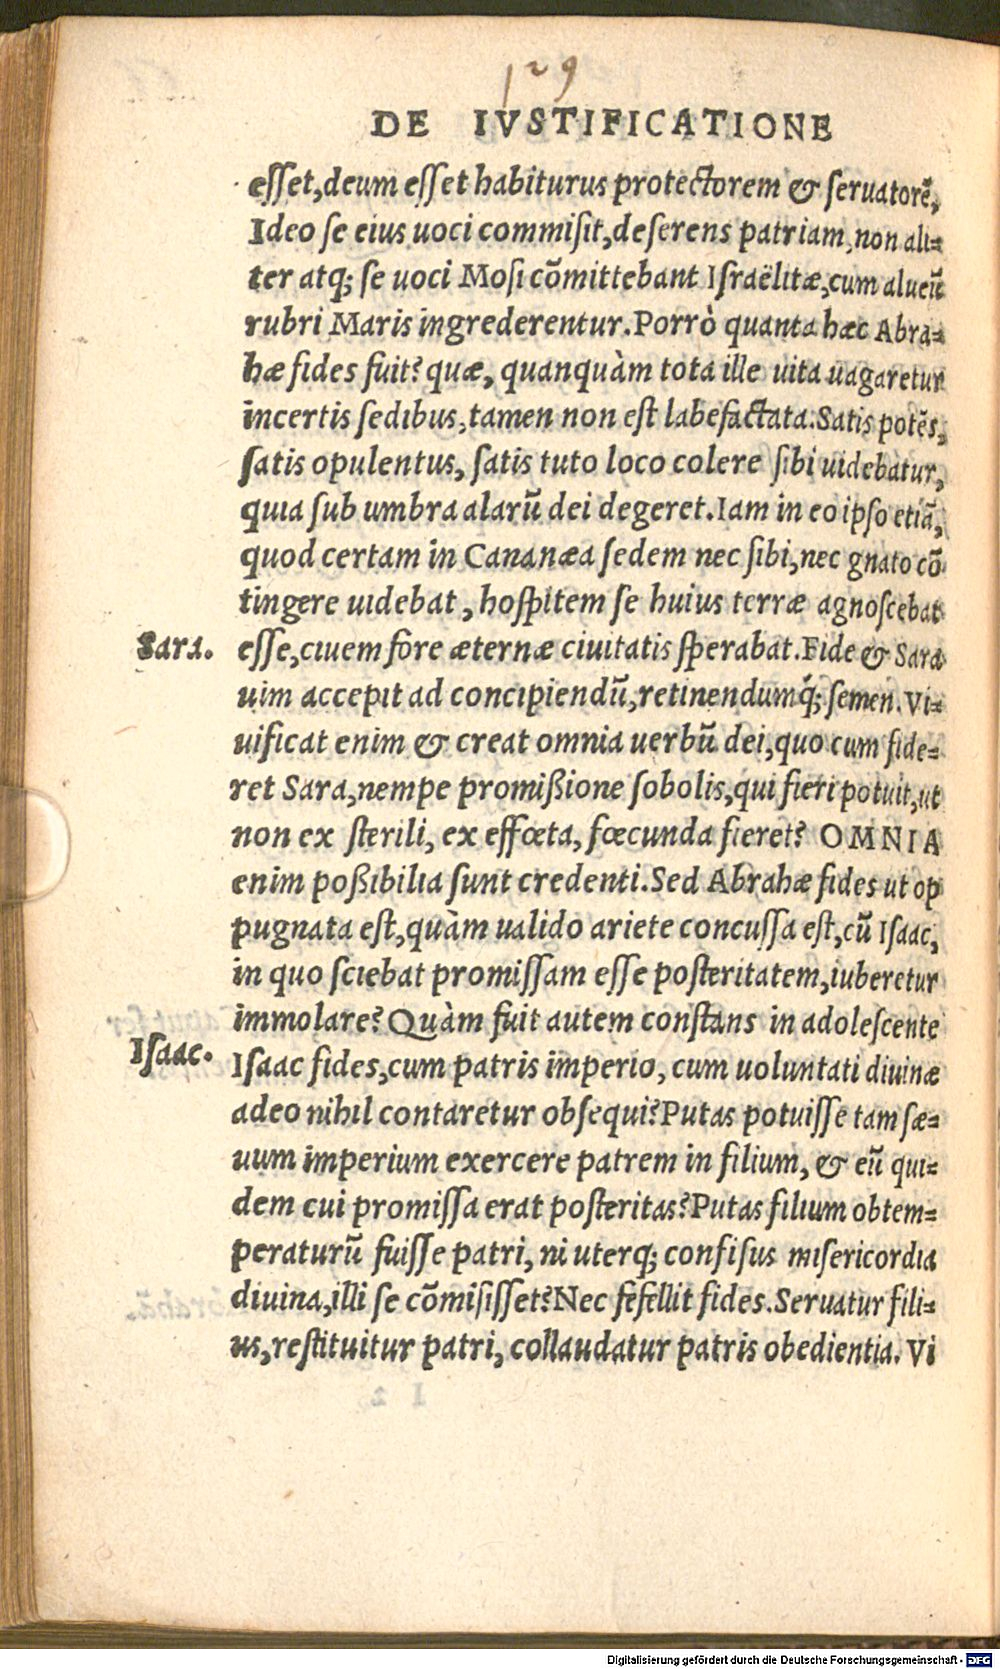 129
DE IVSTIFICATIONE
esset, deum esset habiturus protectorem & seruatorẽ,
Ideo se eius uoci commisit, deserens patriam, non ali-
ter atq; se uoci Mosi cõmittebant Israëlitæ, cum alueũ
rubri Maris ingrederentur. Porrò quanta hæc Abra-
hæ fides fuit? quæ, quanquàm tota ille uita uagaretur
incertis sedibus, tamen non est labefactata. Satis potẽs,
satis opulentus, satis tuto loco colere sibi uidebatur,
quia sub umbra alarũ dei degeret. Iam in eo ipso etiã,
quod certam in Cananæa sedem nec sibi, nec gnato cõ
tingere uidebat, hospitem se huius terræ agnoscebat
Sara. esse, ciuem fore æternæ ciuitatis sperabat. Fide & Sara
uim accepit ad concipiendũ, retinendumq́; semen. Vi-
uificat enim & creat omnia uerbũ dei, quo cum fide-
ret Sara, nempe promißione sobolis, qui fieri potuit, ut
non ex sterili, ex effœta, fœcunda fieret? OMNIA
enim poßibilia sunt credenti. Sed Abrahæ fides ut op
pugnata est, quàm ualido ariete concussa est, cũ Isaac,
in quo sciebat promissam esse posteritatem, iuberetur
immolare? Quàm fuit autem constans in adolescente
Isaac. Isaac fides, cum patris imperio, cum uoluntati diuinæ
adeo nihil contaretur obsequi? Putas potuisse tam sæ-
uum imperium exercere patrem in filium, & eũ qui-
dem cui promissa erat posteritas? Putas filium obtem-
peraturũ fuisse patri, ni uterq; confisus misericordia
diuina, illi se cõmisisset? Nec fefellit fides. Seruatur fili-
us, restituitur patri, collaudatur patris obedientia. Vi
Digitalisierung gefördert durch die Deutsche Forschungsgemeinschaft - DFG